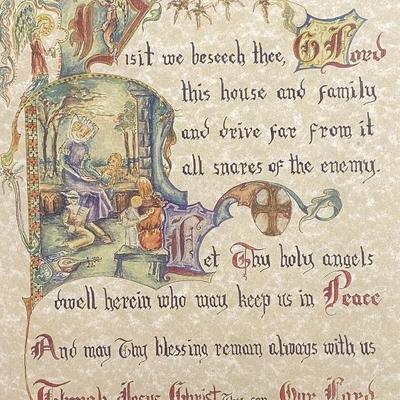 Visit we beseech thee, O Lord
this house and family
and drive far from it
all snares of the enemy.
Let Thy holy angels
dwell herein who may keep us in Peace
And may Thy blessing remain always with us
Through Jesus Christ Thy son Our Lord